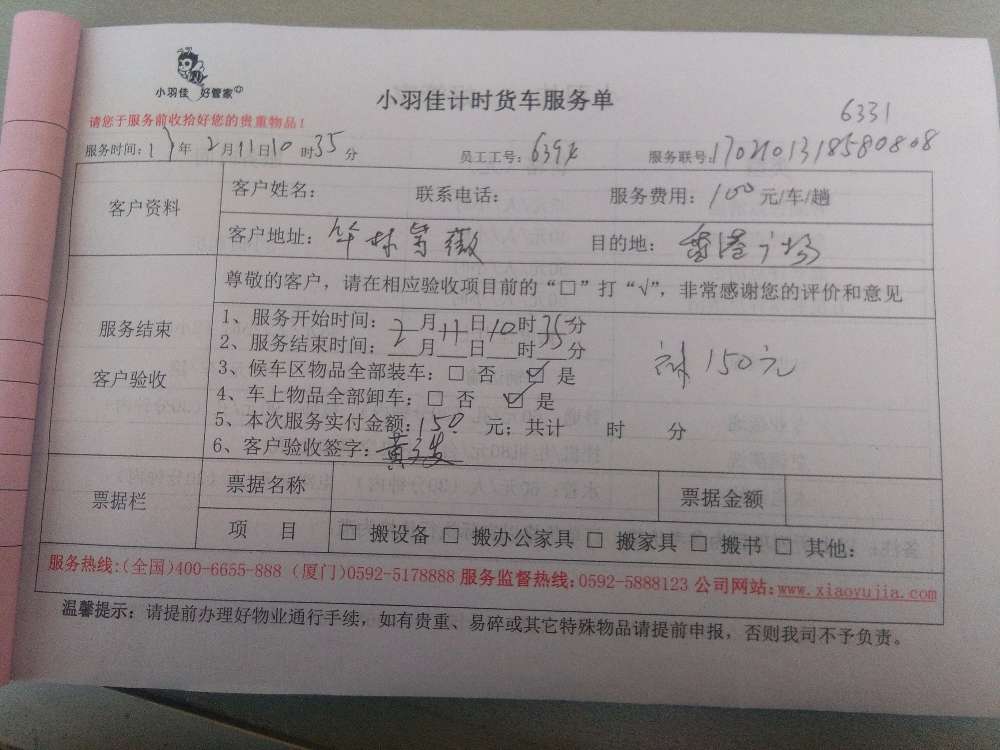 小羽佳 好管家
小羽佳计时货车服务单
6331
请您于服务前收拾好您的贵重物品！
服务时间：17年2月11日10时35分 员工工号：639 服务联号：170210131858080808
客户资料
客户姓名： 联系电话： 服务费用：100元/车/趟
客户地址：华林紫薇 目的地：香港广场
服务结束
客户验收
尊敬的客户，请在相应验收项目前的“□”打“√”，非常感谢您的评价和意见
1、服务开始时间：2月11日10时35分
2、服务结束时间：___月___日___时___分
3、候车区物品全部装车：□ 否 ☑ 是
4、车上物品全部卸车：□ 否 ☑ 是
5、本次服务实付金额：150 元；共计 时 分
6、客户验收签字：黄
150元
票据栏
票据名称 票据金额
项 目 □ 搬设备 □ 搬办公家具 □ 搬家具 □ 搬书 □ 其他：
服务热线：(全国)400-6655-888 (厦门)0592-5178888 服务监督热线：0592-5888123 公司网站：www.xiaoyujia.com
温馨提示：请提前办理好物业通行手续，如有贵重、易碎或其它特殊物品请提前申报，否则我司不予负责。